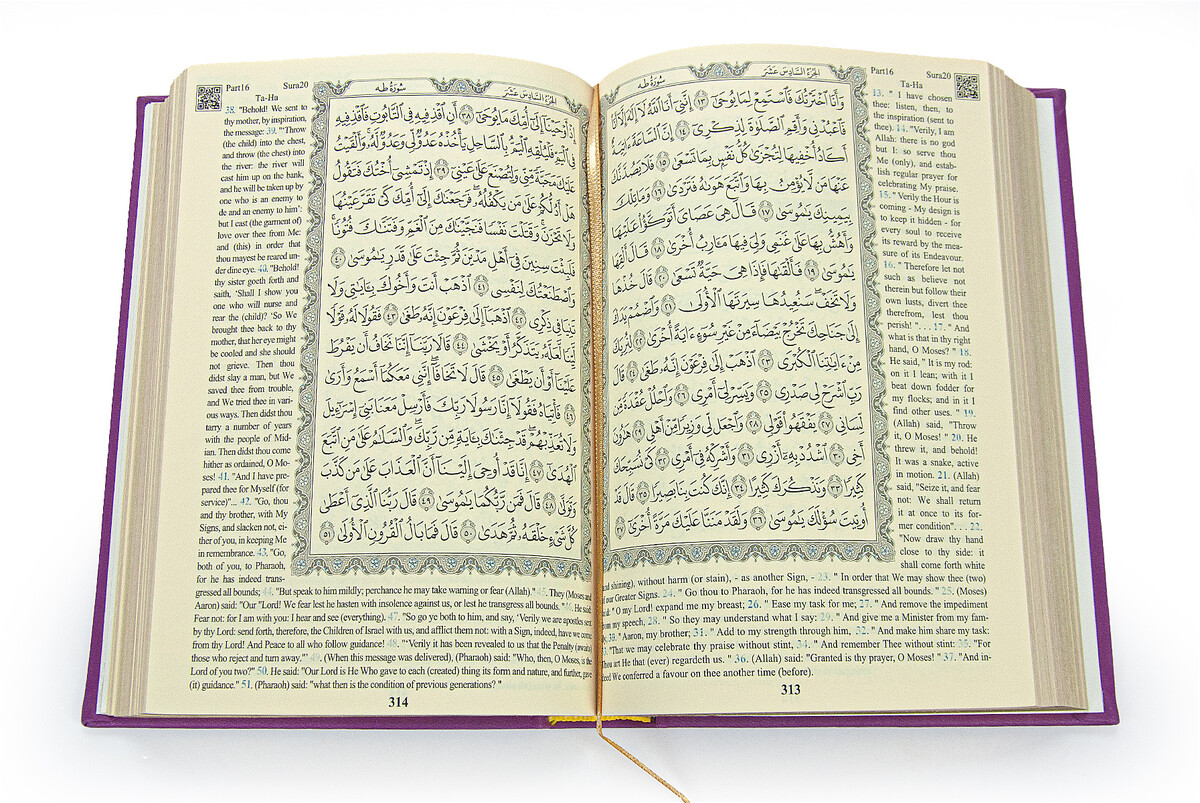 Part16 Sura20
Ta-Ha
سُورَةُ طه الجُزءُ السَّادِسَ عَشَرَ
وَأَنَا ٱخْتَرْتُكَ فَٱسْتَمِعْ لِمَا يُوحَىٰٓ ١٣ إِنَّنِىٓ أَنَا ٱللَّهُ لَآ إِلَٰهَ إِلَّآ
فَٱعْبُدْنِى وَأَقِمِ ٱلصَّلَوٰةَ لِذِكْرِىٓ ١٤ إِنَّ ٱلسَّاعَةَ ءَاتِيَةٌ
أَكَادُ أُخْفِيهَا لِتُجْزَىٰ كُلُّ نَفْسٍۭ بِمَا تَسْعَىٰ ١٥ فَلَا يَصُدَّنَّكَ
عَنْهَا مَن لَّا يُؤْمِنُ بِهَا وَٱتَّبَعَ هَوَىٰهُ فَتَرْدَىٰ ١٦ وَمَا تِلْكَ
بِيَمِينِكَ يَٰمُوسَىٰ ١٧ قَالَ هِىَ عَصَاىَ أَتَوَكَّؤُا۟ عَلَيْهَا
وَأَهُشُّ بِهَا عَلَىٰ غَنَمِى وَلِىَ فِيهَا مَـَٔارِبُ أُخْرَىٰ ١٨ قَالَ أَلْقِهَا
يَٰمُوسَىٰ ١٩ فَأَلْقَىٰهَا فَإِذَا هِىَ حَيَّةٌ تَسْعَىٰ ٢٠ قَالَ خُذْهَا
وَلَا تَخَفْ سَنُعِيدُهَا سِيرَتَهَا ٱلْأُولَىٰ ٢١ وَٱضْمُمْ يَدَكَ
إِلَىٰ جَنَاحِكَ تَخْرُجْ بَيْضَآءَ مِنْ غَيْرِ سُوٓءٍ ءَايَةً أُخْرَىٰ ٢٢ لِنُرِيَكَ
مِنْ ءَايَٰتِنَا ٱلْكُبْرَى ٢٣ ٱذْهَبْ إِلَىٰ فِرْعَوْنَ إِنَّهُۥ طَغَىٰ ٢٤ قَالَ
رَبِّ ٱشْرَحْ لِى صَدْرِى ٢٥ وَيَسِّرْ لِىٓ أَمْرِى ٢٦ وَٱحْلُلْ عُقْدَةً مِّن
لِّسَانِى ٢٧ يَفْقَهُوا۟ قَوْلِى ٢٨ وَٱجْعَل لِّى وَزِيرًا مِّنْ أَهْلِى ٢٩ هَٰرُونَ
أَخِى ٣٠ ٱشْدُدْ بِهِۦٓ أَزْرِى ٣١ وَأَشْرِكْهُ فِىٓ أَمْرِى ٣٢ كَىْ نُسَبِّحَكَ
كَثِيرًا ٣٣ وَنَذْكُرَكَ كَثِيرًا ٣٤ إِنَّكَ كُنتَ بِنَا بَصِيرًا ٣٥ قَالَ قَدْ
أُوتِيتَ سُؤْلَكَ يَٰمُوسَىٰ ٣٦ وَلَقَدْ مَنَنَّا عَلَيْكَ مَرَّةً أُخْرَىٰٓ ٣٧
13. " I have chosen
thee: listen, then, to
the inspiration (sent to
thee). 14. "Verily, I am
Allah: there is no god
but I: so serve thou
Me (only), and estab-
lish regular prayer for
celebrating My praise.
15. " Verily the Hour is
coming - My design is
to keep it hidden - for
every soul to receive
its reward by the mea-
sure of its Endeavour.
16. " Therefore let not
such as believe not
therein but follow their
own lusts, divert thee
therefrom, lest thou
perish! ". . . 17. " And
what is that in thy right
hand, O Moses? " 18.
He said, " It is my rod:
on it I lean; with it I
beat down fodder for
my flocks; and in it I
find other uses. " 19.
(Allah) said, "Throw
it, O Moses! " 20. He
threw it, and behold!
It was a snake, active
in motion. 21. (Allah)
said, "Seize it, and fear
not: We shall return
it at once to its for-
mer condition". . . 22.
"Now draw thy hand
close to thy side: it
shall come forth white
and shining), without harm (or stain), - as another Sign, - 23. " In order that We may show thee (two)
of our Greater Signs. 24. " Go thou to Pharaoh, for he has indeed transgressed all bounds. " 25. (Moses)
said: "O my Lord! expand me my breast; 26. " Ease my task for me; 27. " And remove the impediment
from my speech, 28. " So they may understand what I say: 29. " And give me a Minister from my fam-
ily, 30. "Aaron, my brother; 31. " Add to my strength through him, 32. " And make him share my task:
33. "That we may celebrate thy praise without stint, 34. " And remember Thee without stint: 35. "For
Thou art He that (ever) regardeth us. " 36. (Allah) said: "Granted is thy prayer, O Moses! " 37. "And in-
deed We conferred a favour on thee another time (before).
313
Part16 Sura20
Ta-Ha
سُورَةُ طه الجُزءُ السَّادِسَ عَشَرَ
إِذْ أَوْحَيْنَآ إِلَىٰٓ أُمِّكَ مَا يُوحَىٰٓ ٣٨ أَنِ ٱقْذِفِيهِ فِى ٱلتَّابُوتِ فَٱقْذِفِيهِ
فِى ٱلْيَمِّ فَلْيُلْقِهِ ٱلْيَمُّ بِٱلسَّاحِلِ يَأْخُذْهُ عَدُوٌّ لِّى وَعَدُوٌّ لَّهُۥ وَأَلْقَيْتُ
عَلَيْكَ مَحَبَّةً مِّنِّى وَلِتُصْنَعَ عَلَىٰ عَيْنِىٓ ٣٩ إِذْ تَمْشِىٓ أُخْتُكَ فَتَقُولُ
هَلْ أَدُلُّكُمْ عَلَىٰ مَن يَكْفُلُهُۥ فَرَجَعْنَٰكَ إِلَىٰٓ أُمِّكَ كَىْ تَقَرَّ عَيْنُهَا
وَلَا تَحْزَنَ وَقَتَلْتَ نَفْسًا فَنَجَّيْنَٰكَ مِنَ ٱلْغَمِّ وَفَتَنَّٰكَ فُتُونًا
فَلَبِثْتَ سِنِينَ فِىٓ أَهْلِ مَدْيَنَ ثُمَّ جِئْتَ عَلَىٰ قَدَرٍ يَٰمُوسَىٰ ٤٠
وَٱصْطَنَعْتُكَ لِنَفْسِى ٤١ ٱذْهَبْ أَنتَ وَأَخُوكَ بِـَٔايَٰتِى وَلَا
تَنِيَا فِى ذِكْرِى ٤٢ ٱذْهَبَآ إِلَىٰ فِرْعَوْنَ إِنَّهُۥ طَغَىٰ ٤٣ فَقُولَا لَهُۥ قَوْلًا
لَّيِّنًا لَّعَلَّهُۥ يَتَذَكَّرُ أَوْ يَخْشَىٰ ٤٤ قَالَا رَبَّنَآ إِنَّنَا نَخَافُ أَن يَفْرُطَ
عَلَيْنَآ أَوْ أَن يَطْغَىٰ ٤٥ قَالَ لَا تَخَافَآ إِنَّنِى مَعَكُمَآ أَسْمَعُ وَأَرَىٰ
٤٦ فَأْتِيَاهُ فَقُولَآ إِنَّا رَسُولَا رَبِّكَ فَأَرْسِلْ مَعَنَا بَنِىٓ إِسْرَٰٓءِيلَ
وَلَا تُعَذِّبْهُمْ قَدْ جِئْنَٰكَ بِـَٔايَةٍ مِّن رَّبِّكَ وَٱلسَّلَٰمُ عَلَىٰ مَنِ ٱتَّبَعَ
ٱلْهُدَىٰٓ ٤٧ إِنَّا قَدْ أُوحِىَ إِلَيْنَآ أَنَّ ٱلْعَذَابَ عَلَىٰ مَن كَذَّبَ
وَتَوَلَّىٰ ٤٨ قَالَ فَمَن رَّبُّكُمَا يَٰمُوسَىٰ ٤٩ قَالَ رَبُّنَا ٱلَّذِىٓ أَعْطَىٰ
كُلَّ شَىْءٍ خَلْقَهُۥ ثُمَّ هَدَىٰ ٥٠ قَالَ فَمَا بَالُ ٱلْقُرُونِ ٱلْأُولَىٰ ٥١
38. "Behold! We sent to
thy mother, by inspiration,
the message: 39. "'Throw
(the child) into the chest,
and throw (the chest) into
the river: the river will
cast him up on the bank,
and he will be taken up by
one who is an enemy to
de and an enemy to him':
but I cast (the garment of)
love over thee from Me:
and (this) in order that
thou mayest be reared un-
der dine eye. 40. "Behold!
thy sister goeth forth and
saith, 'Shall I show you
one who will nurse and
rear the (child)? 'So We
brought thee back to thy
mother, that her eye might
be cooled and she should
not grieve. Then thou
didst slay a man, but We
saved thee from trouble,
and We tried thee in vari-
ous ways. Then didst thou
tarry a number of years
with the people of Mid-
ian. Then didst thou come
hither as ordained, O Mo-
ses! 41. "And I have pre-
pared thee for Myself (for
service)"... 42. "Go, thou
and thy brother, with My
Signs, and slacken not, ei-
ther of you, in keeping Me
in remembrance. 43. "Go,
both of you, to Pharaoh,
for he has indeed trans-
gressed all bounds; 44. "But speak to him mildly; perchance he may take warning or fear (Allah)." 45. They (Moses and
Aaron) said: "Our "Lord! We fear lest he hasten with insolence against us, or lest he transgress all bounds. "46. He said:
Fear not: for I am with you: I hear and see (everything). 47. "So go ye both to him, and say, 'Verily we are apostles sent
by thy Lord: send forth, therefore, the Children of Israel with us, and afflict them not: with a Sign, indeed, have we come
from thy Lord! And Peace to all who follow guidance! 48. "'Verily it has been revealed to us that the Penalty (awaits)
those who reject and turn away."' 49. (When this message was delivered), (Pharaoh) said: "Who, then, O Moses, is the
Lord of you two?" 50. He said: "Our Lord is He Who gave to each (created) thing its form and nature, and further, gave
(it) guidance." 51. (Pharaoh) said: "what then is the condition of previous generations? "
314